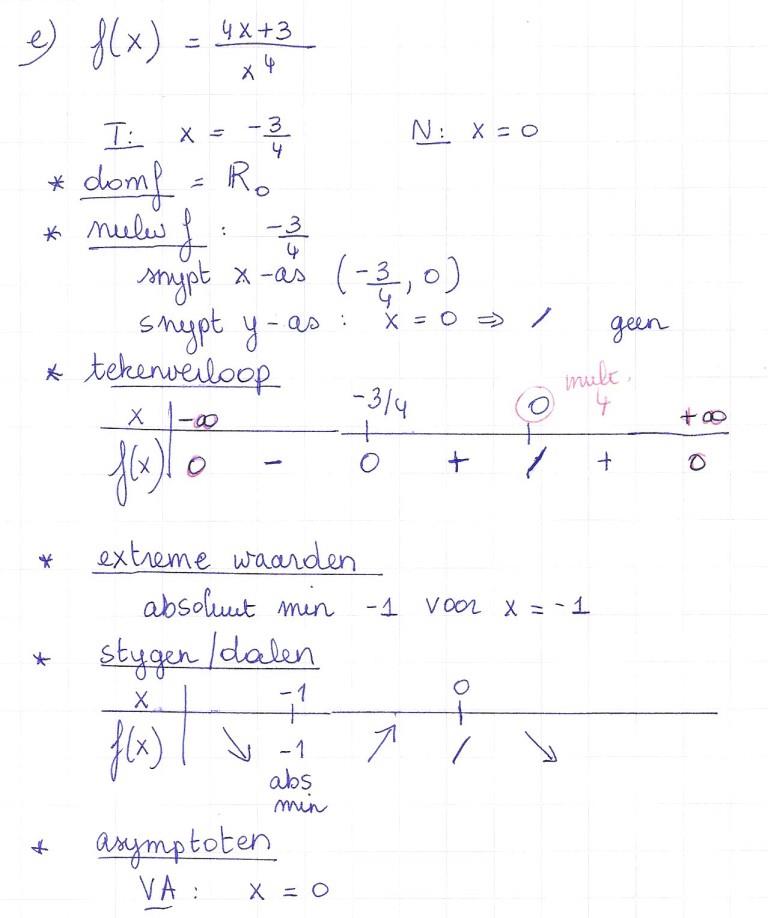 e) f(x) = (4x+3)/x⁴
T: x = -3/4 N: x = 0
* domf = ℝ₀
* nulw f : -3/4
snypt x-as (-3/4, 0)
snypt y-as : x = 0 ⇒ / geen
* tekenverloop
mult. 4
x | -∞ -3/4 0 +∞
f(x) | 0 - 0 + / + 0
* extreme waarden
absoluut min -1 voor x = -1
* stygen/dalen
x | -1 0
f(x) | ↘ -1 ↗ / ↘
abs
min
* asymptoten
VA : x = 0